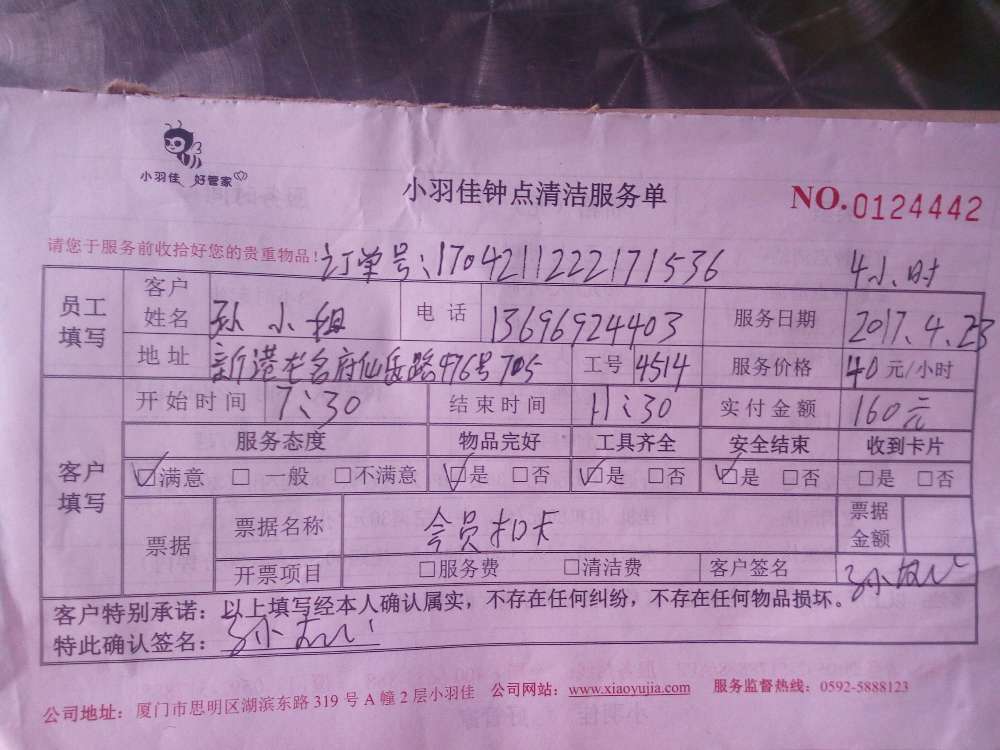 小羽佳 好管家
小羽佳钟点清洁服务单
NO.0124442
请您于服务前收拾好您的贵重物品!
订单号:17042112221 71536 4小时
员工填写 客户姓名 孙小姐 电话 13696924403 服务日期 2017.4.23
地址 新港龙名府仙岳路476号705 工号 4514 服务价格 40元/小时
开始时间 7:30 结束时间 11:30 实付金额 160元
客户填写 服务态度 物品完好 工具齐全 安全结束 收到卡片
☑满意 □一般 □不满意 ☑是 □否 ☑是 □否 ☑是 □否 □是 □否
票据 票据名称 会员扣卡 票据金额
开票项目 □服务费 □清洁费 客户签名 孙
客户特别承诺:以上填写经本人确认属实,不存在任何纠纷,不存在任何物品损坏。
特此确认签名: 孙
公司地址:厦门市思明区湖滨东路319号A幢2层小羽佳 公司网站:www.xiaoyujia.com 服务监督热线:0592-5888123